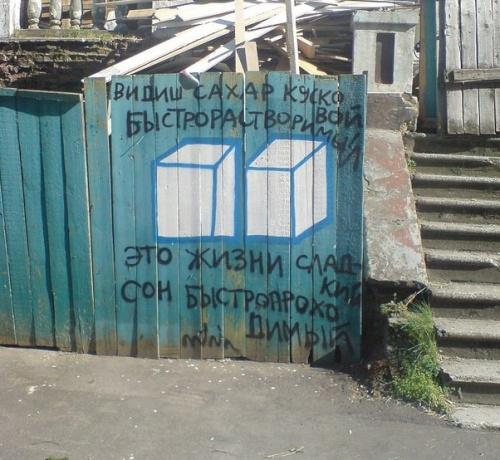 ВИДИШ САХАР КУСКО
ВОЙ
БЫСТРОРАСТВОРИМЫЙ
ЭТО ЖИЗНИ СЛАД-
КИЙ
СОН БЫСТРОПРОХО
ДИМЫЙ